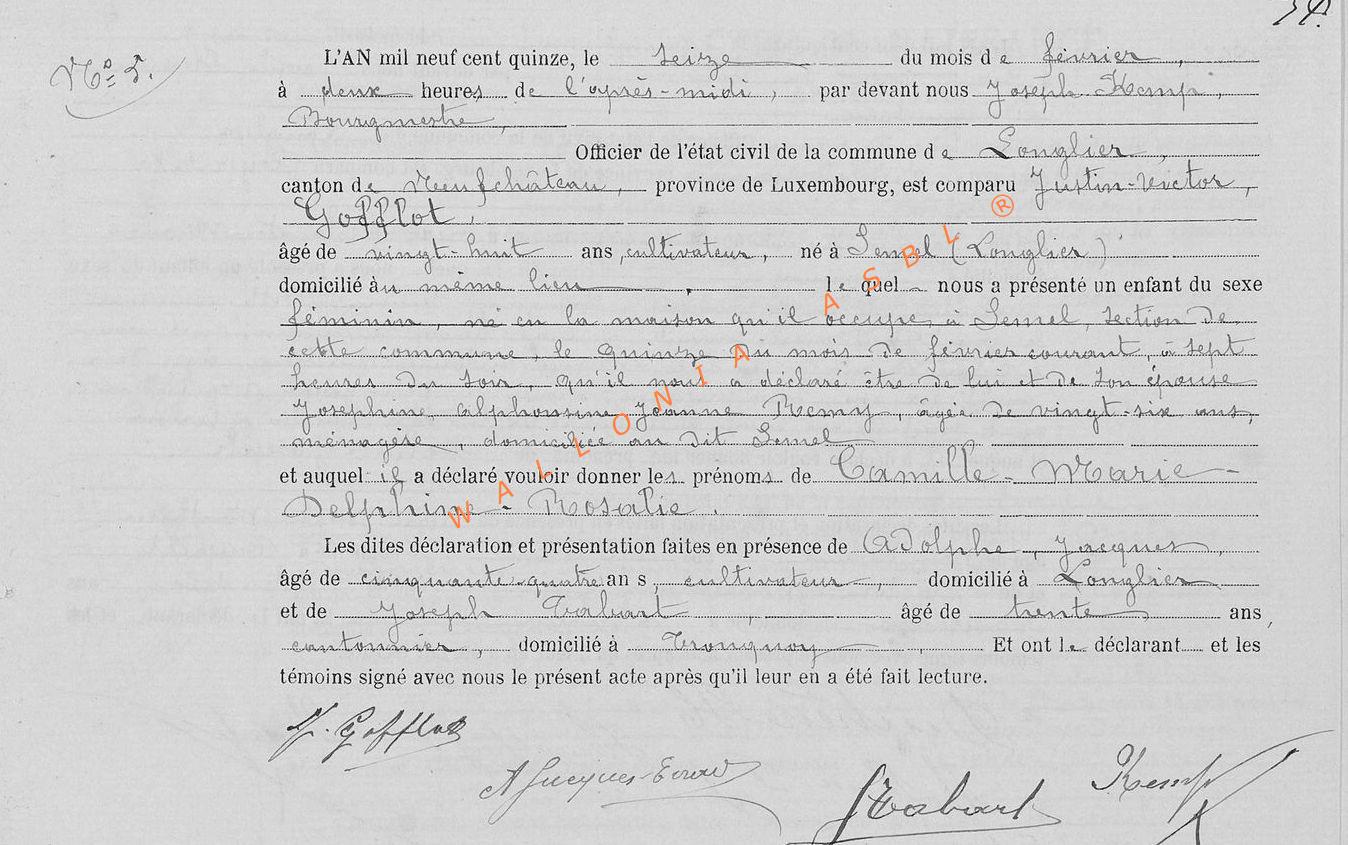 54.
Nº 5.
L'AN mil neuf cent quinze, le seize du mois de février,
à deux heures de l'après-midi, par devant nous Joseph Kemp,
Bourgmestre,
Officier de l'état civil de la commune de Longlier,
canton de Neufchâteau, province de Luxembourg, est comparu Justin-Victor,
Gofflot,
âgé de vingt-huit ans, cultivateur, né à Semel (Longlier)
domicilié au même lieu, lequel nous a présenté un enfant du sexe
féminin, né en la maison qu'il occupe, à Semel, section de
cette commune, le quinze du mois de février courant, à sept
heures du soir, qu'il nous a déclaré être de lui et de son épouse
Joséphine Alphonsine Jeanne Remy, âgée de vingt-six ans,
ménagère, domiciliée au dit Semel
et auquel il a déclaré vouloir donner les prénoms de Camille - Marie -
Delphine - Rosalie.
Les dites déclaration et présentation faites en présence de Adolphe Jacques,
âgé de cinquante-quatre ans, cultivateur, domicilié à Longlier
et de Joseph Tabart, âgé de trente ans,
cantonnier, domicilié à Tronquoy, Et ont le déclarant et les
témoins signé avec nous le présent acte après qu'il leur en a été fait lecture.
J. Gofflot
A Jacques-
J Tabart
Kemp
WALLONIA ASBL ®